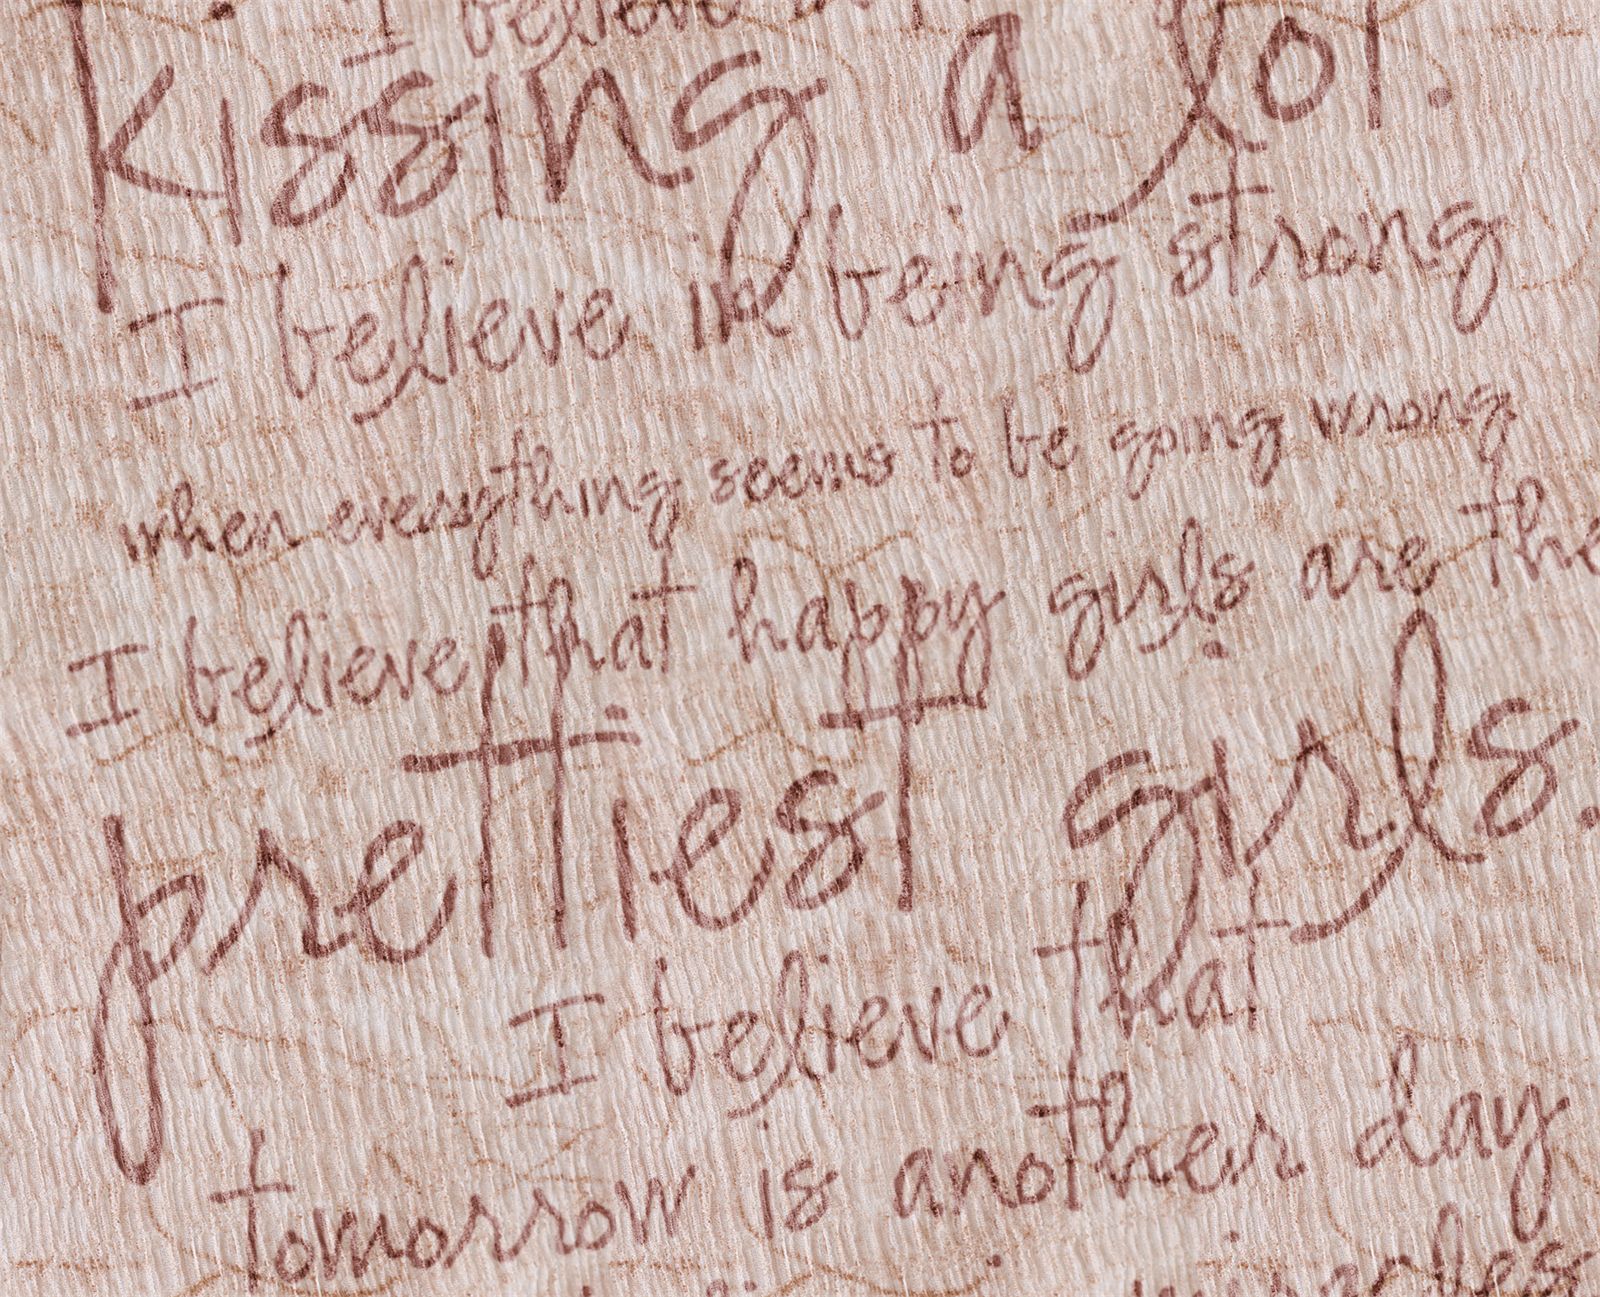 I believe
kissing a lot.
I believe in being strong
when everything seems to be going wrong
I believe that happy girls are the
prettiest girls.
I believe that
tomorrow is another day